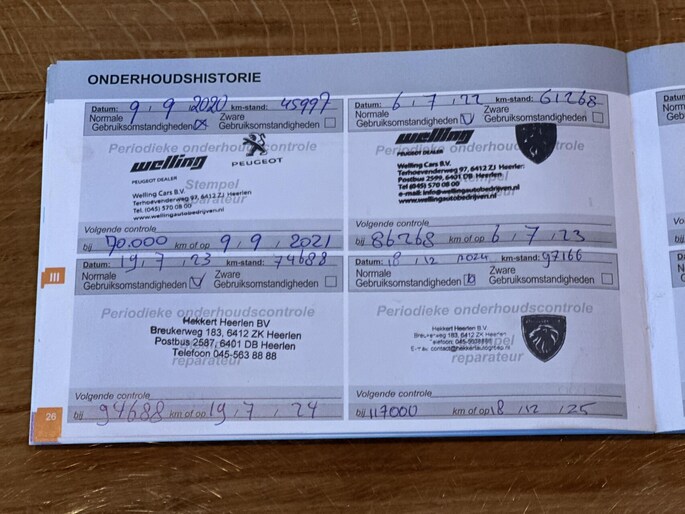 ONDERHOUDSHISTORIE
Datum: 9, 9, 2020 km-stand: 45997
Normale Gebruiksomstandigheden
Zware Gebruiksomstandigheden
Periodieke onderhoudscontrole
welling
PEUGEOT DEALER
PEUGEOT
Stempel reparateur
Welling Cars B.V.
Terhoevenderweg 97, 6412 ZJ Heerlen
Tel. (045) 570 08 00
www.wellingautobedrijven.nl
Volgende controle
bij 70.000 km of op 9, 9, 2021
Datum: 6, 7, 22 km-stand: 61268
Normale Gebruiksomstandigheden
Zware Gebruiksomstandigheden
Periodieke onderhoudscontrole
welling
PEUGEOT DEALER
Welling Cars B.V.
Terhoevenderweg 97, 6412 ZJ Heerlen
Postbus 2599, 6401 DB Heerlen
Tel (045) 570 08 00
e-mail: info@wellingautobedrijven.nl
www.wellingautobedrijven.nl
Volgende controle
bij 86268 km of op 6, 7, 23
III
Datum: 19, 7, 23 km-stand: 74688
Normale Gebruiksomstandigheden
Zware Gebruiksomstandigheden
Periodieke onderhoudscontrole
Hekkert Heerlen BV
Breukerweg 183, 6412 ZK Heerlen
Postbus 2587, 6401 DB Heerlen
Telefoon 045-563 88 88
reparateur
Volgende controle
bij 94688 km of op 19, 7, 24
Datum: 18, 12 2024 km-stand: 97166
Normale Gebruiksomstandigheden
Zware Gebruiksomstandigheden
Periodieke onderhoudscontrole
Hekkert Heerlen B.V.
Breukerweg 183, 6412 ZK Heerlen
Telefoon: 045-5638888
reparateur
Volgende controle
bij 117000 km of op 18, 12, 25
26